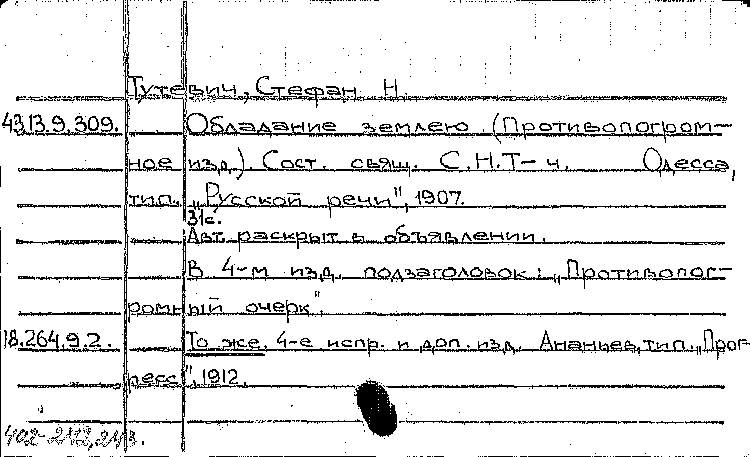 Тутевич, Стефан Н.
43.13.9.309. Обладание землею. (Противопогром-
ное изд.). Сост. свящ. С.Н.Т-ч. Одесса,
тип. „Русской речи", 1907.
31с.
Авт. раскрыт в объявлении.
В 4-м изд. подзаголовок: „Противопог-
ромный очерк".
18.264.9.2. То же. 4-е испр. и доп. изд. Ананьев, тип. „Прог-
ресс", 1912.
402-242,243.